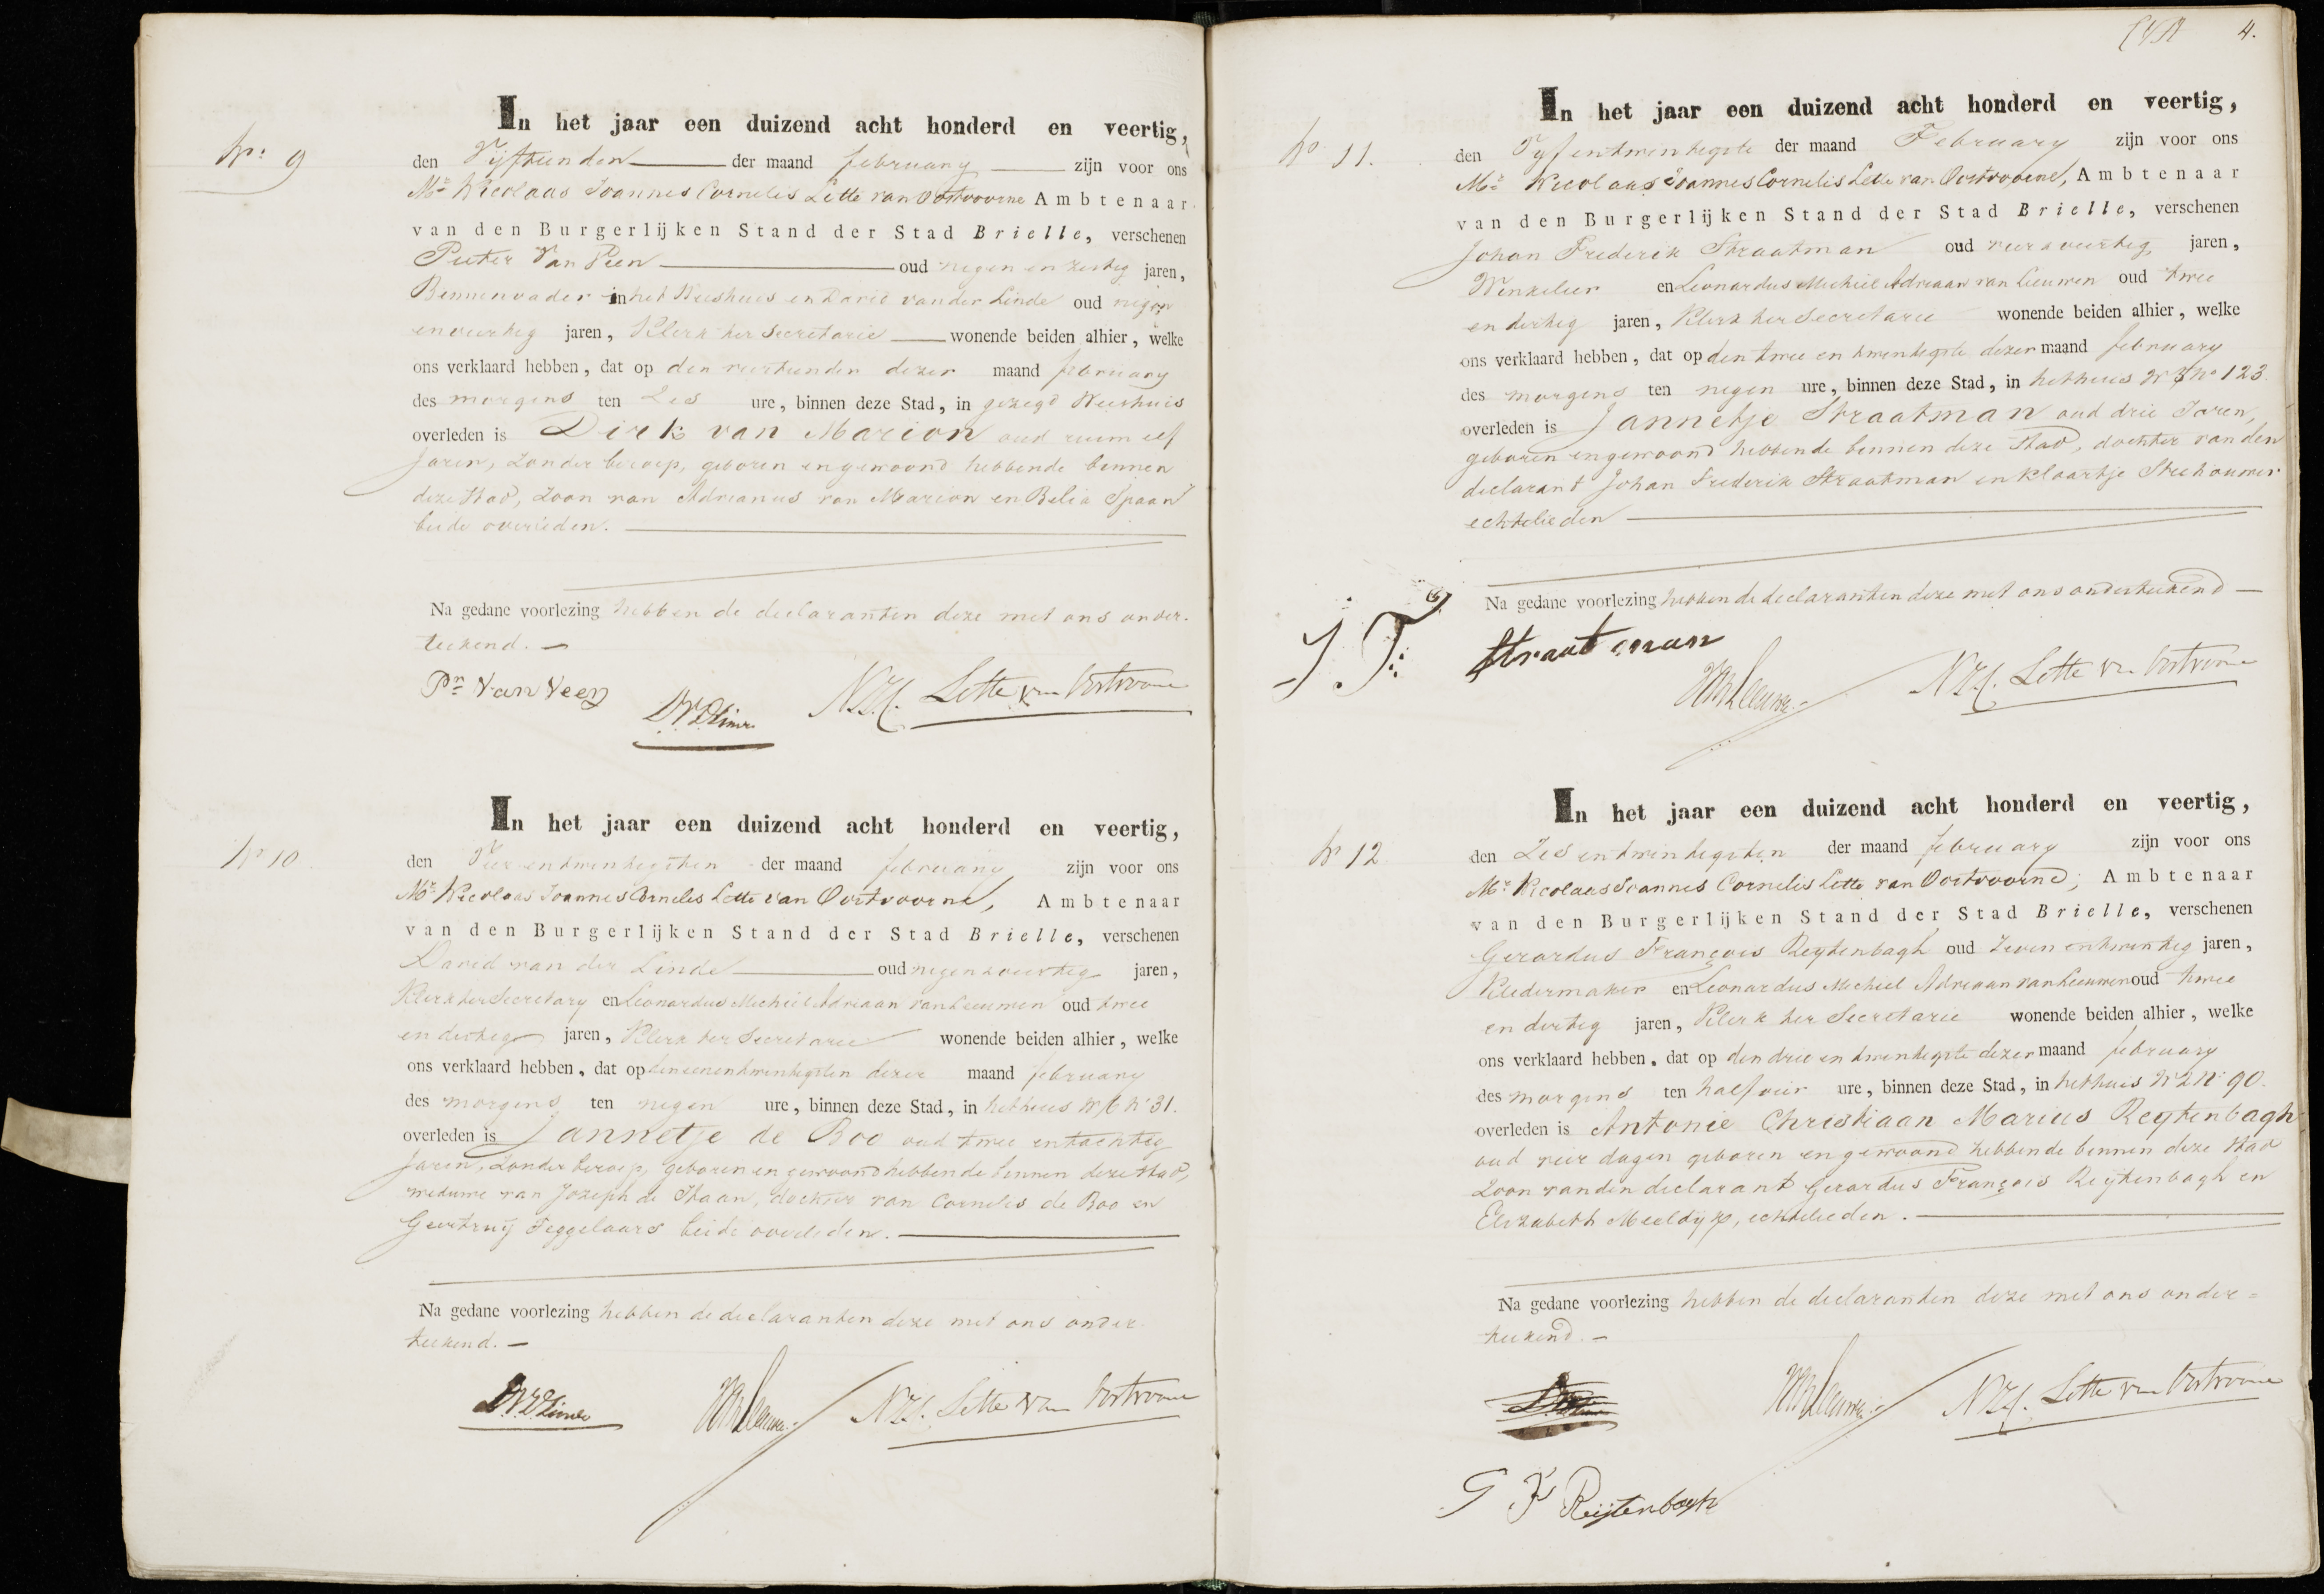 No 9
In het jaar een duizend acht honderd en veertig,
den Vijftienden der maand february zijn voor ons
Mr Nicolaas Joannes Cornelis Lette van Oostvoorne Ambtenaar
van den Burgerlijken Stand der Stad Brielle, verschenen
Pieter Van Veen oud negen en zestig jaren,
Binnenvader in het Weeshuis en David van der Linde oud negen
en veertig jaren, Klerk ter Secretarie wonende beiden alhier, welke
ons verklaard hebben, dat op den veertienden dezer maand february
des morgens ten Zes ure, binnen deze Stad, in gezegd Weeshuis
overleden is Dirk van Marion oud ruim elf
Jaren, Zonder beroep, geboren en gewoond hebbende binnen
deze Stad, Zoon van Adrianus van Marion en Belia Spaan
beide overleden.
Na gedane voorlezing hebben de declaranten deze met ons onder.
teekend.
Pr Van Veen
DVDLinde
NJC. Lette van Oostvoorne
No 10
In het jaar een duizend acht honderd en veertig,
den Vier en twintigsten der maand february zijn voor ons
Mr Nicolaas Joannes Cornelis Lette van Oostvoorne, Ambtenaar
van den Burgerlijken Stand der Stad Brielle, verschenen
David van der Linde oud negen & veertig jaren,
Klerk ter Secretary en Leonardus Michiel Adriaan van Leeuwen oud twee
en dertig jaren, Klerk ter Secretarie wonende beiden alhier, welke
ons verklaard hebben, dat op den eenentwintigsten dezer maand february
des morgens ten negen ure, binnen deze Stad, in het huis W 6 No 31.
overleden is Jannetje de Boo oud twee en tachtig
Jaren, Zonder beroep, geboren en gewoond hebbende binnen deze Stad,
weduwe van Jozeph de Haan, dochter van Cornelis de Boo en
Geertruij Teggelaars beide overleden.
Na gedane voorlezing hebben de declaranten deze met ons onder
teekend.
DVDLinde
VanLeeuwen
NJC. Lette van Oostvoorne
4.
No 11.
In het jaar een duizend acht honderd en veertig,
den Vijf entwintigste der maand February zijn voor ons
Mr Nicolaas Joannes Cornelis Lette van Oostvoorne, Ambtenaar
van den Burgerlijken Stand der Stad Brielle, verschenen
Johan Frederik Straatman oud vier & veertig jaren,
Winkelier en Leonardus Michiel Adriaan van Leeuwen oud twee
en dertig jaren, Klerk ter Secretarie wonende beiden alhier, welke
ons verklaard hebben, dat op den twee en twintigste dezer maand february
des morgens ten negen ure, binnen deze Stad, in het huis W 3 No 123.
overleden is Jannetje Straatman oud drie Jaren,
geboren en gewoond hebbende binnen deze Stad, dochter van den
declarant Johan Frederik Straatman en Klaartje Strehouwer
echtelieden
Na gedane voorlezing hebben de declaranten deze met ons onderteekend
J F Straatman
VanLeeuwen
NJC. Lette van Oostvoorne
No 12
In het jaar een duizend acht honderd en veertig,
den Zes entwintigsten der maand february zijn voor ons
Mr Nicolaas Joannes Cornelis Lette van Oostvoorne, Ambtenaar
van den Burgerlijken Stand der Stad Brielle, verschenen
Gerardus François Reytenbagh oud Zeven entwintig jaren,
Kledermaker en Leonardus Michiel Adriaan van Leeuwen oud twee
en dertig jaren, Klerk ter Secretarie wonende beiden alhier, welke
ons verklaard hebben, dat op den drie en twintigste dezer maand february
des morgens ten half vier ure, binnen deze Stad, in het huis W 2 No 90.
overleden is Antonie Christiaan Marius Reytenbagh
oud vier dagen geboren en gewoond hebbende binnen deze Stad
Zoon van den declarant Gerardus François Reytenbagh en
Elizabeth Meeldijk, echtelieden.
Na gedane voorlezing hebben de declaranten deze met ons onder=
teekend.
VanLeeuwen
NJC. Lette van Oostvoorne
G F Reijtenbagh